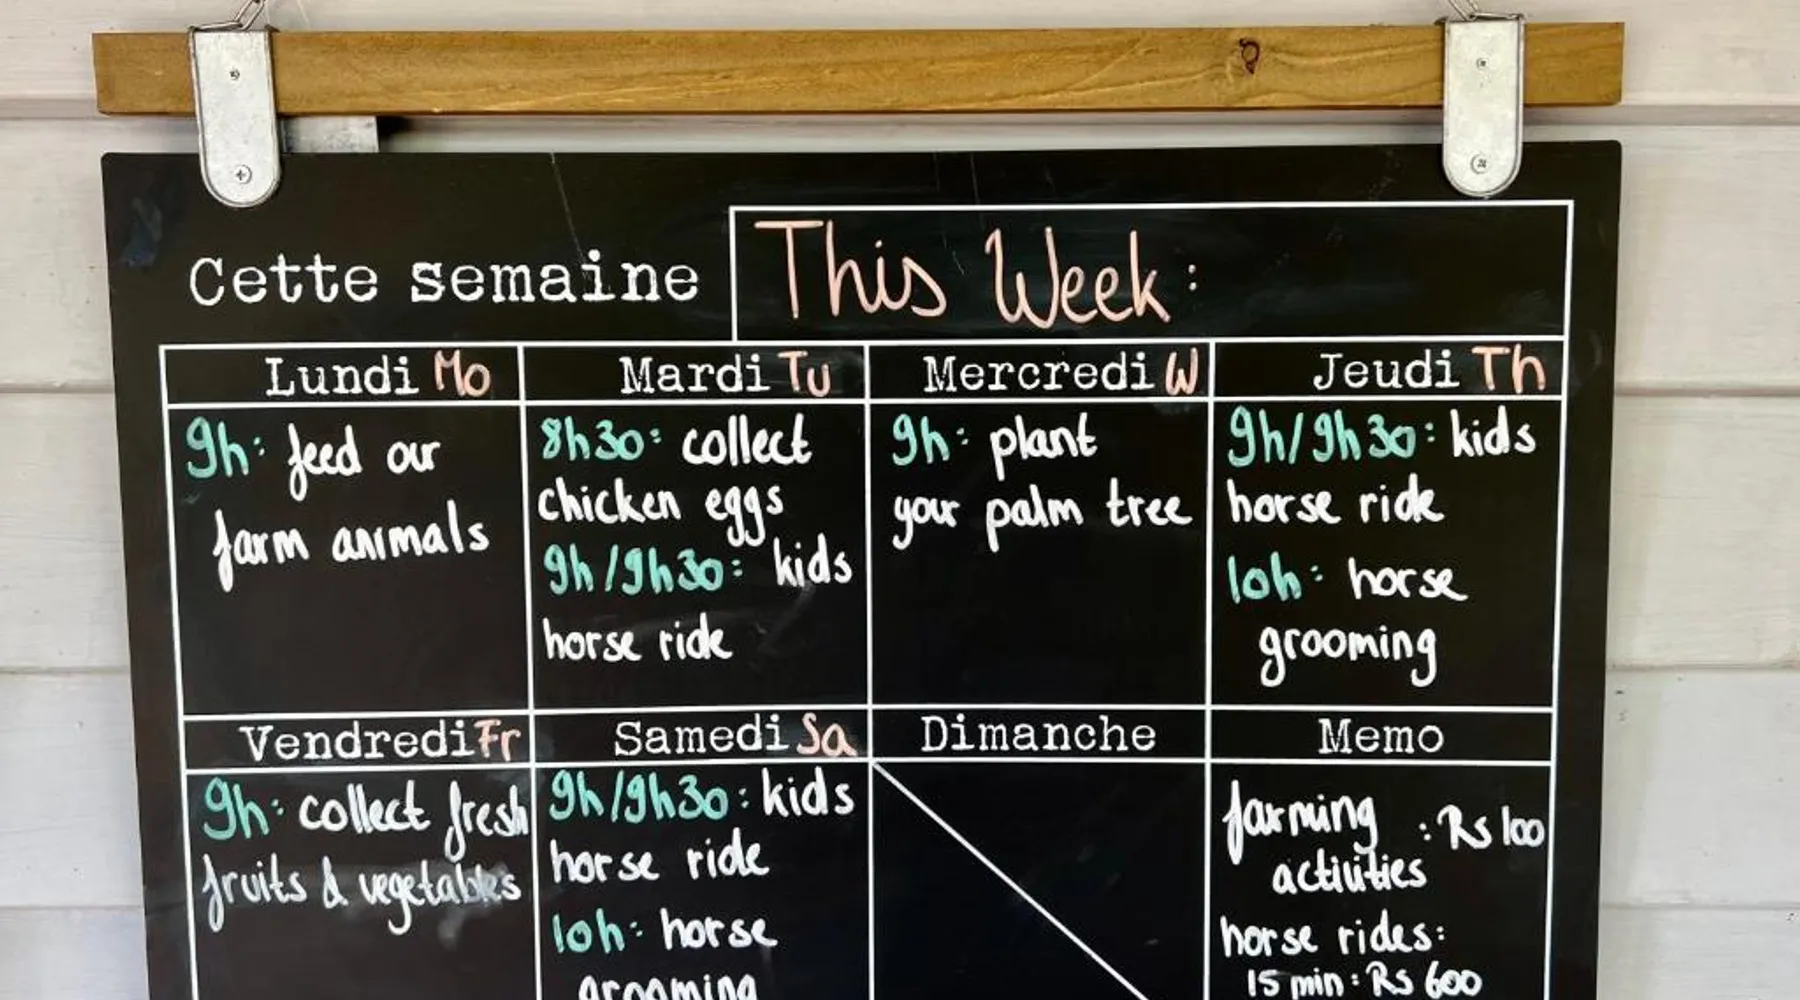 Cette semaine This Week:
Lundi Mo
9h: feed our
farm animals
Mardi Tu
8h30: collect
chicken eggs
9h/9h30: kids
horse ride
Mercredi W
9h: plant
your palm tree
Jeudi Th
9h/9h30: kids
horse ride
10h: horse
grooming
Vendredi Fr
9h: collect fresh
fruits & vegetables
Samedi Sa
9h/9h30: kids
horse ride
10h: horse
grooming
Dimanche
Memo
farming : Rs 100
activities
horse rides:
15 min: Rs 600